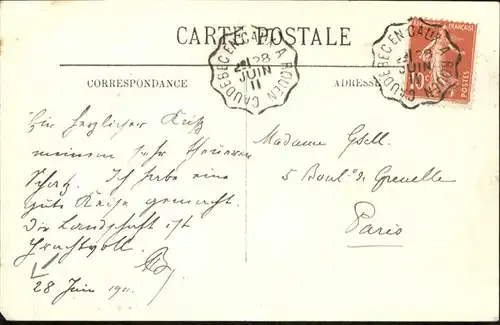 CARTE POSTALE
CAUDEBEC EN CAUX A ROUEN
28
JUIN
11
CAUDEBEC EN CAUX A ROUEN
28
JUIN
11
10c
CORRESPONDANCE
ADRESSE
Ein herzlicher Kuß
meinem sehr theueren
Schatz. Ich habe eine
gute Reise gemacht.
Die Landschaft ist
prachtvoll.
28 Juin 1911.
Madame Gsell.
5 Boul. de Grenelle
Paris